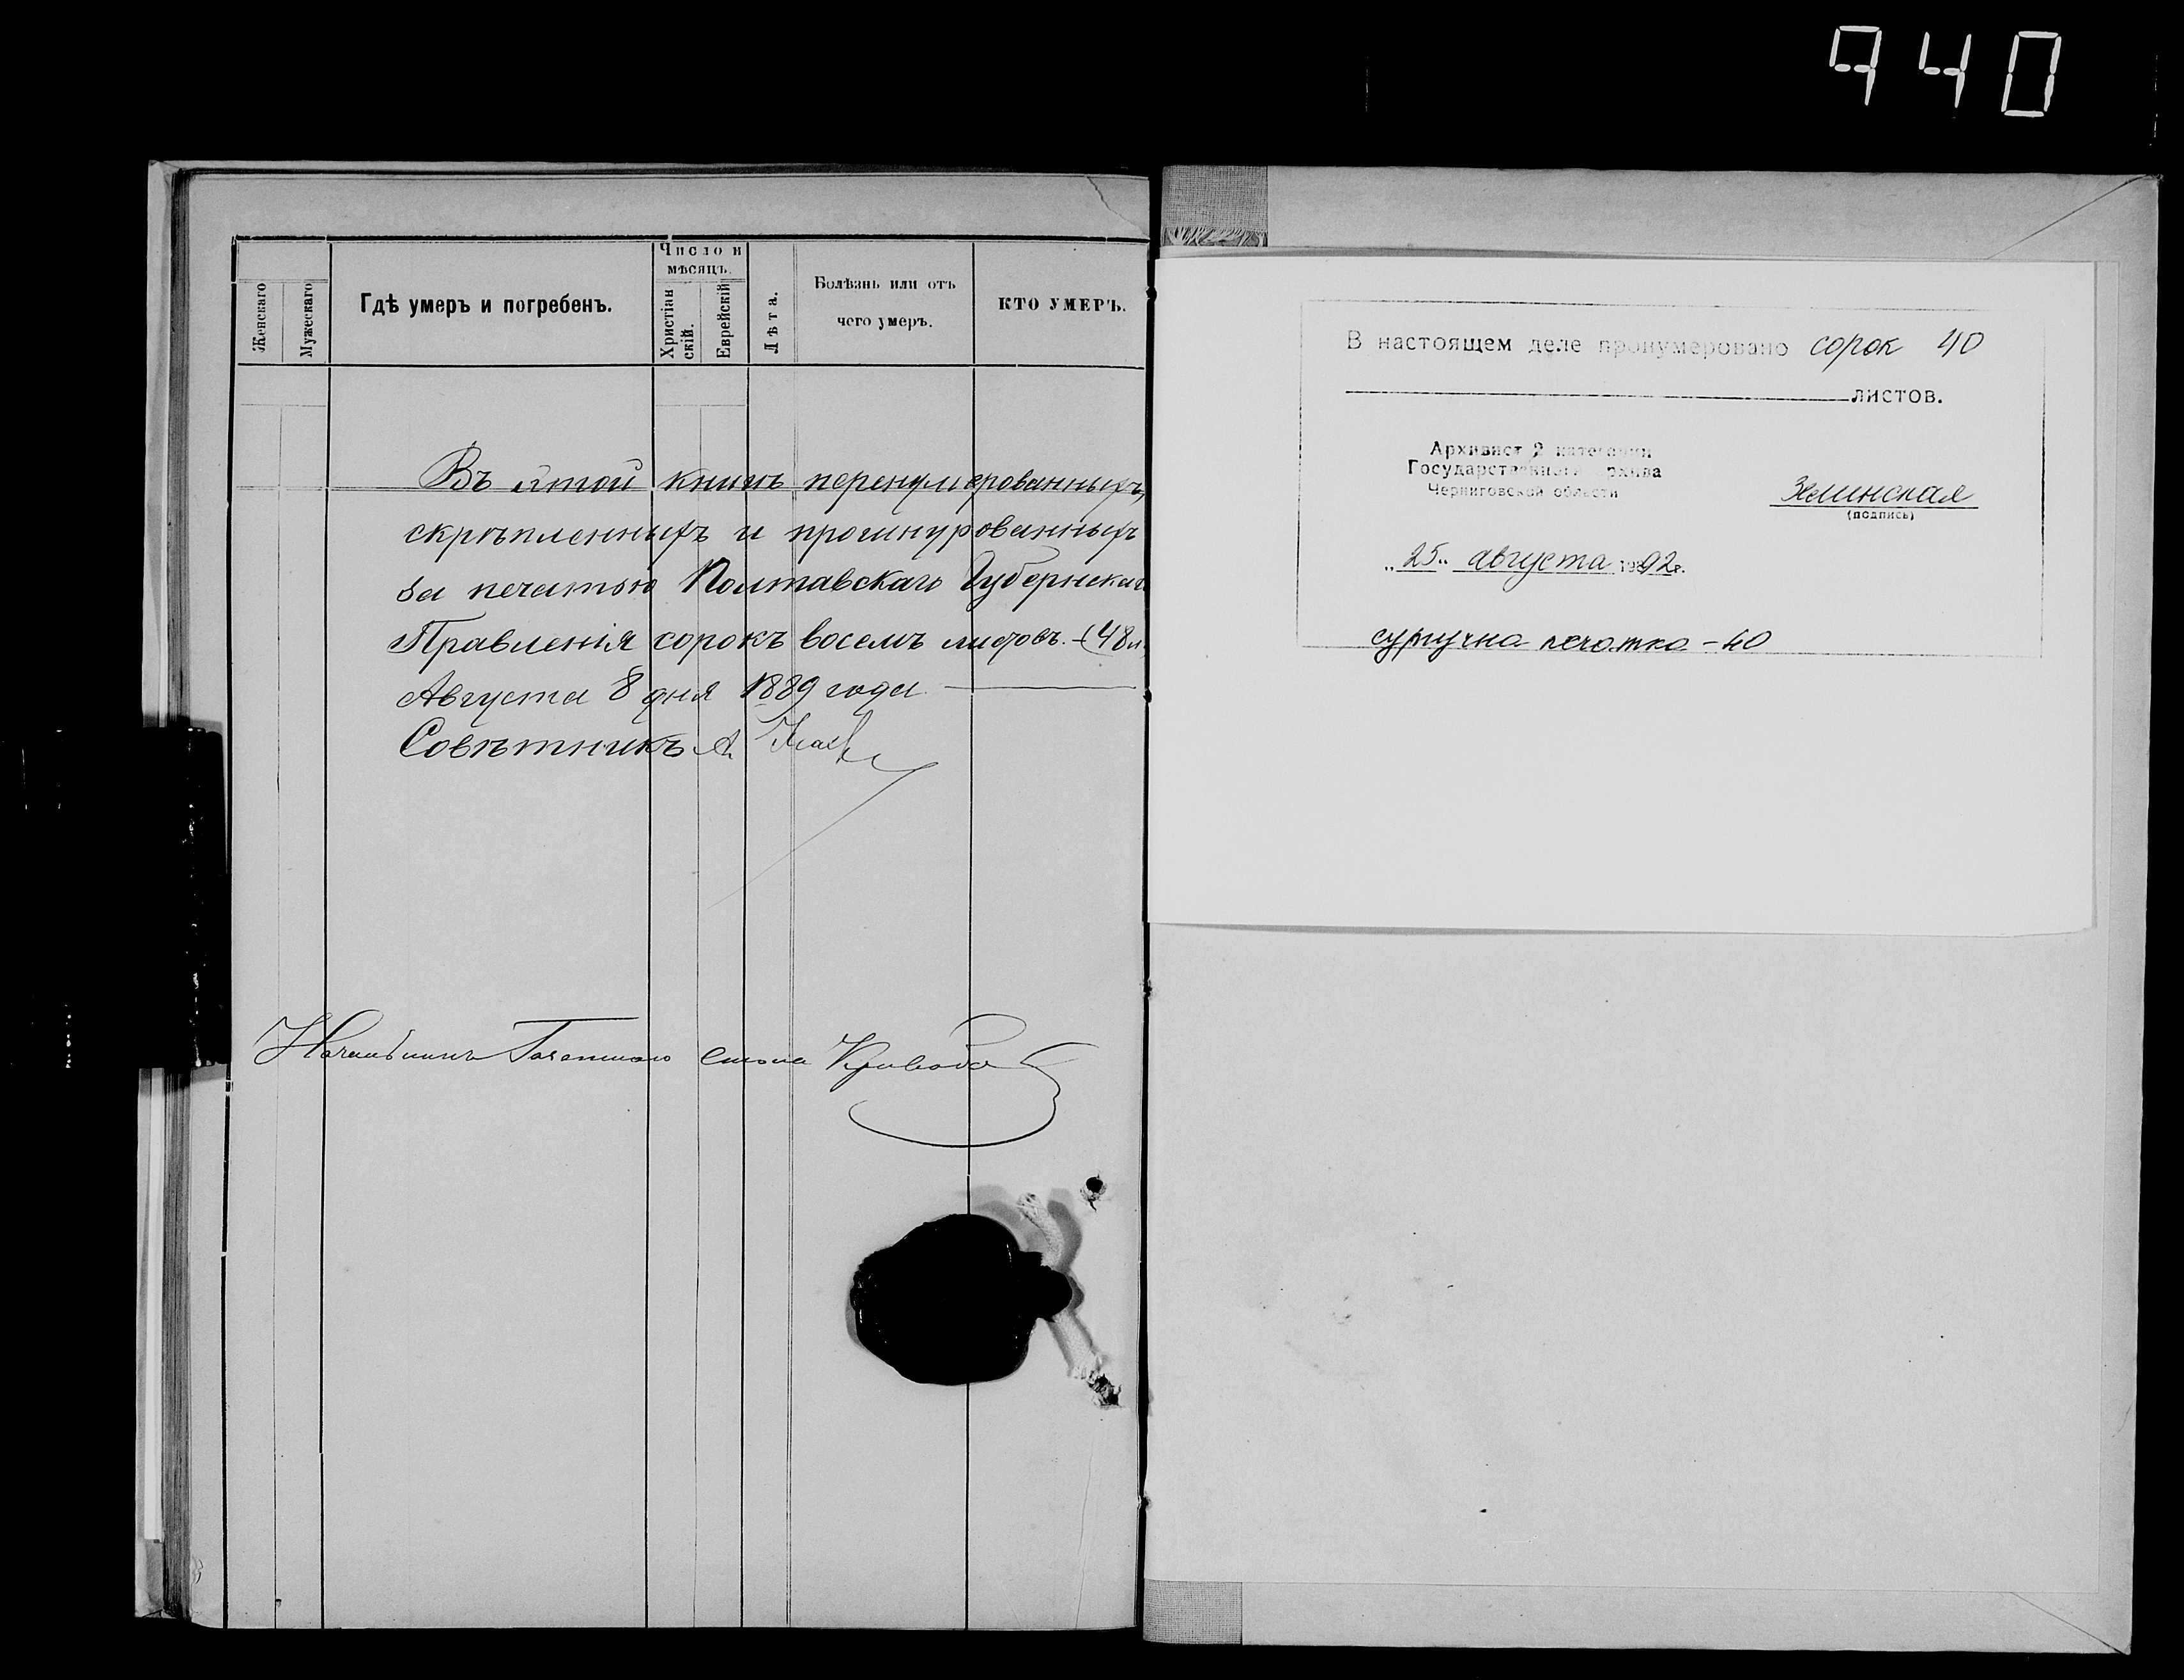 940
Женскаго
Мужескаго
Гдѣ умеръ и погребенъ.
Число и мѣсяцъ.
Христіан скій.
Еврейскій
Лѣта.
Болѣзнь или отъ чего умеръ.
КТО УМЕРЪ.
Въ этой книгѣ перенумерованныхъ,
скрѣпленныхъ и прошнурованныхъ
за печатью Полтавскаго Губернскаго
Правленія сорокъ восемъ листовъ. (48 л.
Августа 8 дня 1889 года
Совѣтникъ А.
Начальникъ Газетнаго стола
В настоящем деле пронумеровано сорок 40
листов.
Архивист 2 категории
Государственного архива
Черниговской области
(подпись)
"25" августа 1992г.
сургучна печатка - 40